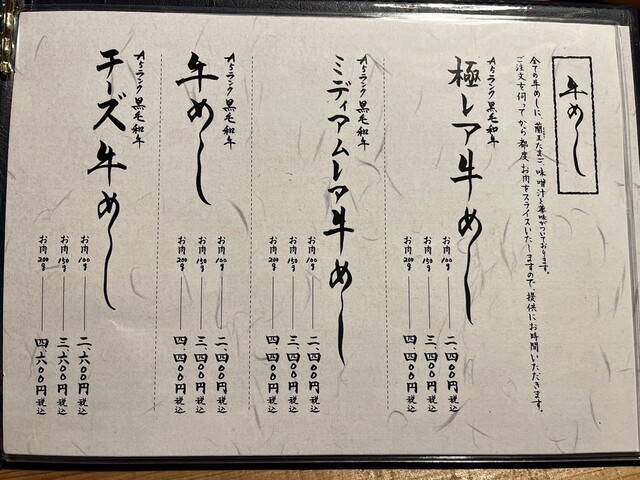 牛めし
全ての牛めしに、蘭王たまご、味噌汁と薬味がついております。
ご注文を伺ってから都度、お肉をスライスいたしますので、提供にお時間いただきます。
A5ランク黒毛和牛
極レア牛めし
お肉100g 二、四〇〇円税込
お肉150g 三、四〇〇円税込
お肉200g 四、四〇〇円税込
A5ランク黒毛和牛
ミディアムレア牛めし
お肉100g 二、四〇〇円税込
お肉150g 三、四〇〇円税込
お肉200g 四、四〇〇円税込
A5ランク黒毛和牛
牛めし
お肉100g 二、四〇〇円税込
お肉150g 三、四〇〇円税込
お肉200g 四、四〇〇円税込
A5ランク黒毛和牛
チーズ牛めし
お肉100g 二、六〇〇円税込
お肉150g 三、六〇〇円税込
お肉200g 四、六〇〇円税込